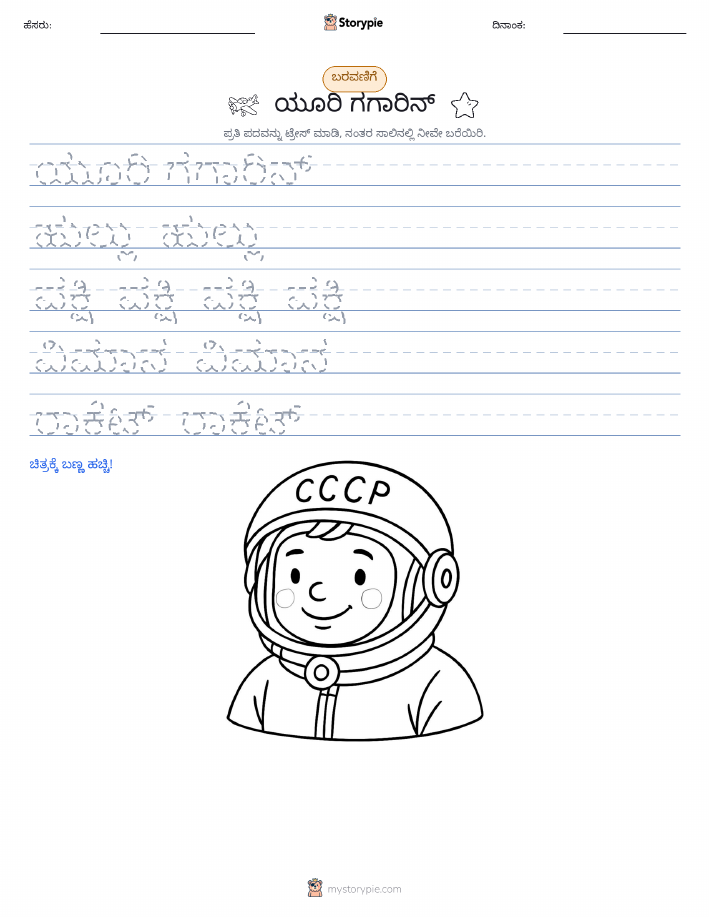 ಹೆಸರು:
Storypie
ದಿನಾಂಕ:
ಬರವಣಿಗೆ
ಯೂರಿ ಗಗಾರಿನ್
ಪ್ರತಿ ಪದವನ್ನು ಟ್ರೇಸ್ ಮಾಡಿ, ನಂತರ ಸಾಲಿನಲ್ಲಿ ನೀವೇ ಬರೆಯಿರಿ.
ಯೂರಿ ಗಗಾರಿನ್
ಹುಲ್ಲು ಹುಲ್ಲು
ಪಕ್ಷಿ ಪಕ್ಷಿ ಪಕ್ಷಿ ಪಕ್ಷಿ
ವಿಮಾನ ವಿಮಾನ
ರಾಕೆಟ್ ರಾಕೆಟ್
ಚಿತ್ರಕ್ಕೆ ಬಣ್ಣ ಹಚ್ಚಿ!
СССР
mystorypie.com